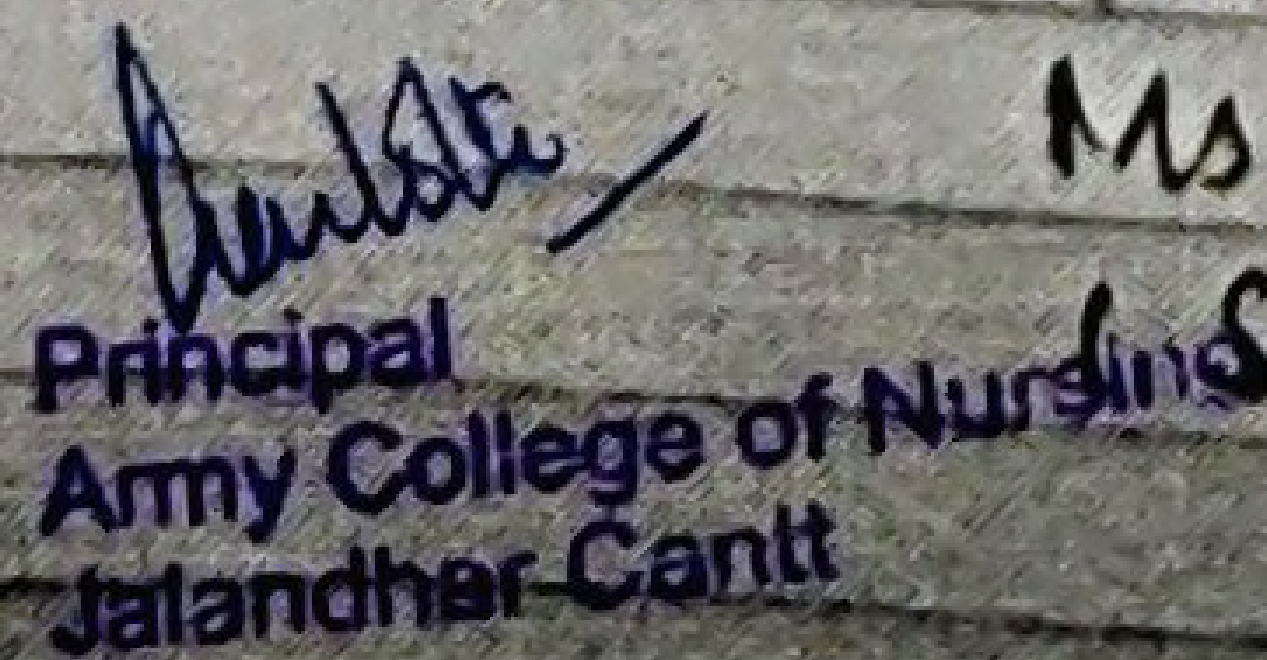 Ms
Principal
Army College of Nursing
Jalandhar Cantt